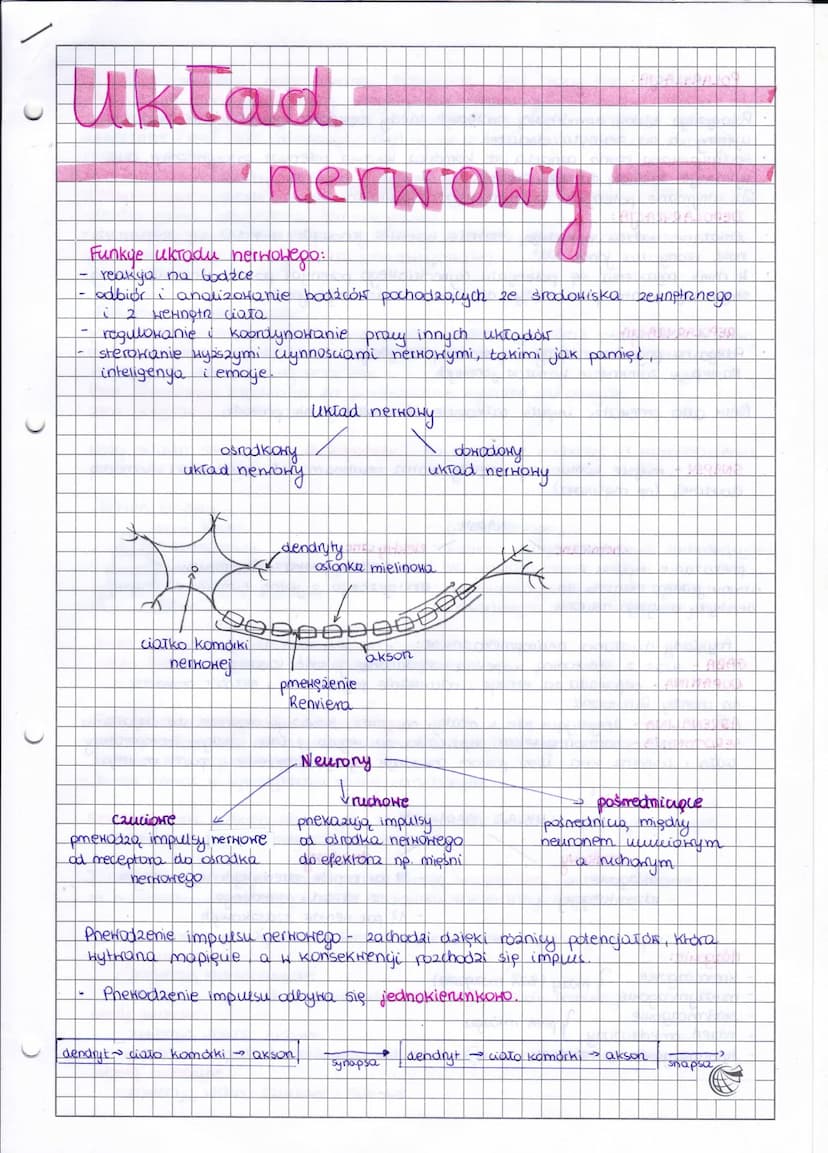 Układ
nerwowy
Funkcje układu nerwowego:
- reakcja na bodźce
- odbiór i analizowanie bodźców pochodzących ze środowiska zewnętrznego
i z wewnątrz ciała
- regulowanie i koordynowanie pracy innych układów
- sterowanie wyższymi czynnościami nerwowymi, takimi jak pamięć,
inteligencja i emocje.
Układ nerwowy
ośrodkowy
układ nerwowy
obwodowy
układ nerwowy
dendryty
osłonka mielinowa
ciałko komórki
nerwowej
akson
przewężenie
Renviera
Neurony
czuciowe
przewodzą impulsy nerwowe
od receptora do ośrodka
nerwowego
ruchowe
przekazują impulsy
od ośrodka nerwowego
do efektora np. mięśni
pośredniczące
pośredniczą między
neuronem czuciowym
a ruchowym
Przewodzenie impulsu nerwowego - zachodzi dzięki różnicy potencjałów, która
wytwarza napięcie a w konsekwencji rozchodzi się impuls.
- Przewodzenie impulsu odbywa się jednokierunkowo.
dendryt → ciało komórki → akson → synapsa dendryt → ciało komórki → akson → snapsa